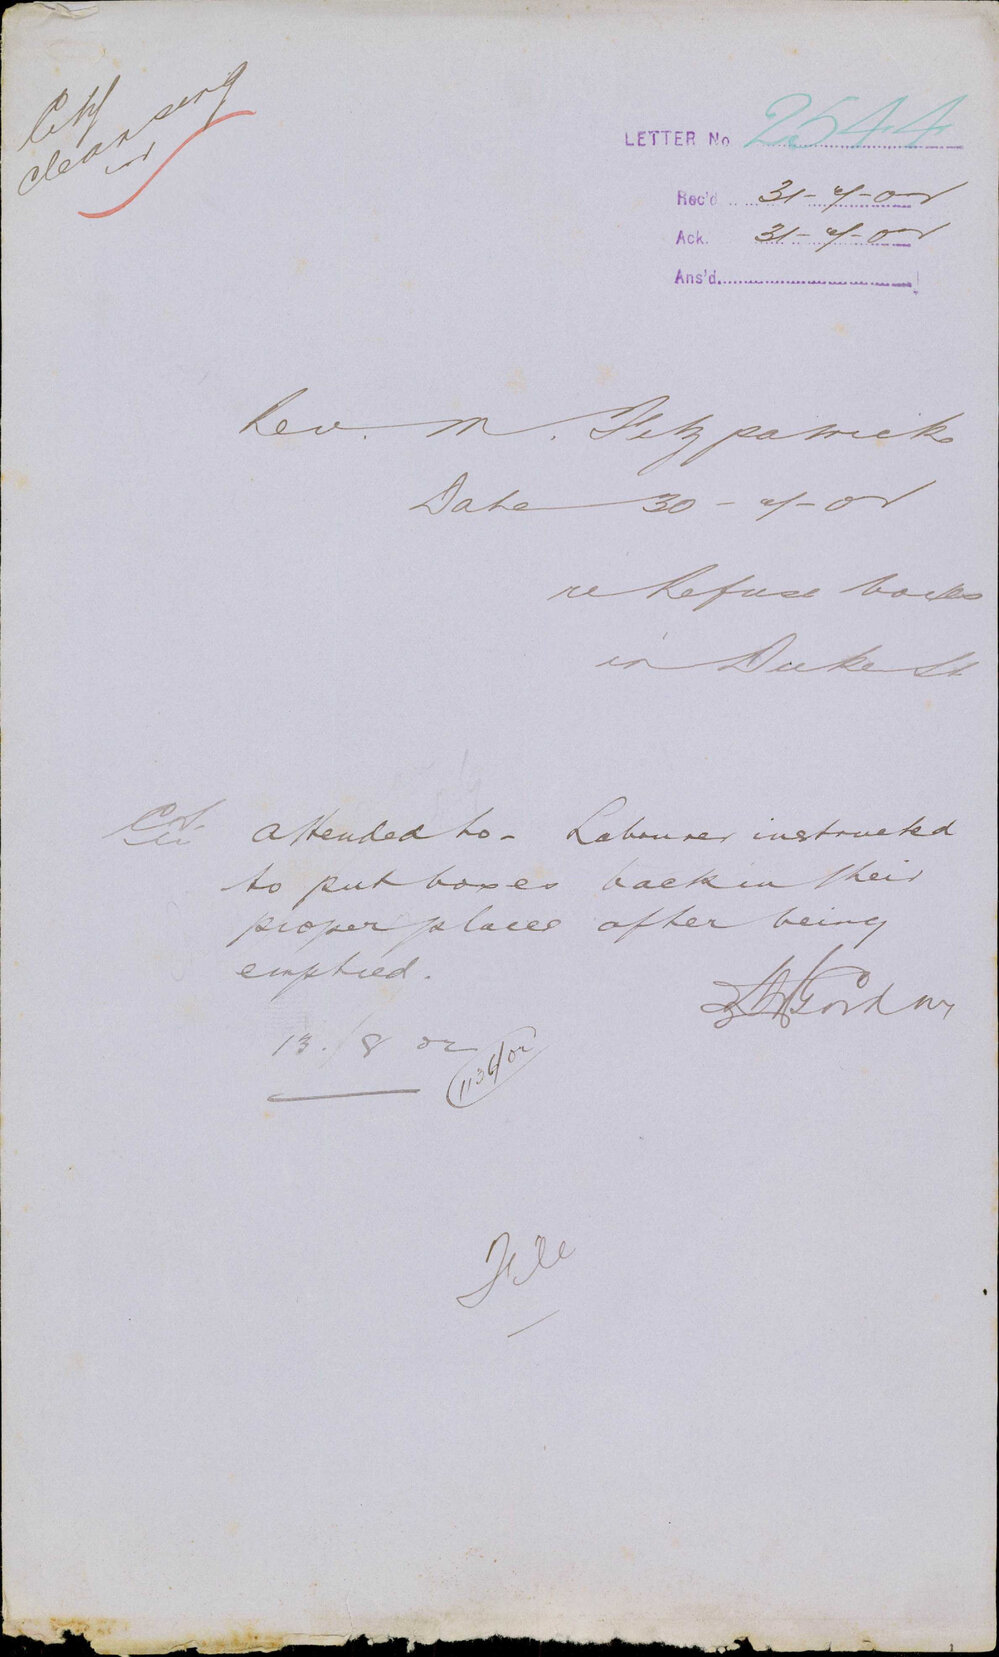 City
cleansing
LETTER No 2544
Rec'd 31-7-02
Ack. 31-7-02
Ans'd
Rev. M. Fitzpatrick
Date 30-7-02
re Refuse boxes
in Duke St
attended to - Labourer instructed
to put boxes back in their
proper places after being
emptied.
Gordon
13/8 02
1136/02
File